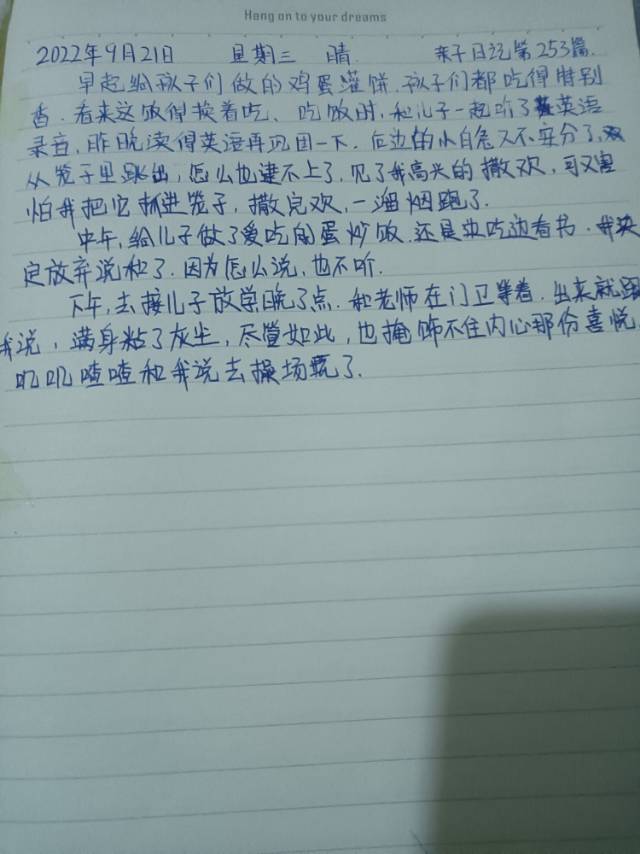 Hang on to your dreams
2022年9月21日 星期三 晴 亲子日记第253篇.
早起给孩子们做的鸡蛋灌饼.孩子们都吃得特别
香.看来这饭得换着吃、吃饭时,和儿子一起听了英语
录音,昨晚读得英语再巩固一下.后边的小白兔又不安分了,
从笼子里跳出,怎么也逮不上了.见了我高兴的撒欢,可又害
怕我把它抓进笼子,撒完欢,一溜烟跑了.
中午,给儿子做了爱吃的蛋炒饭.还是边吃边看书.我决
定放弃说和了.因为怎么说,也不听.
下午,去接儿子放学晚了点.和老师在门卫等着.出来就跟
我说,满身粘了灰尘,尽管如此,也掩饰不住内心那份喜悦.
叽叽喳喳和我说去操场玩了.